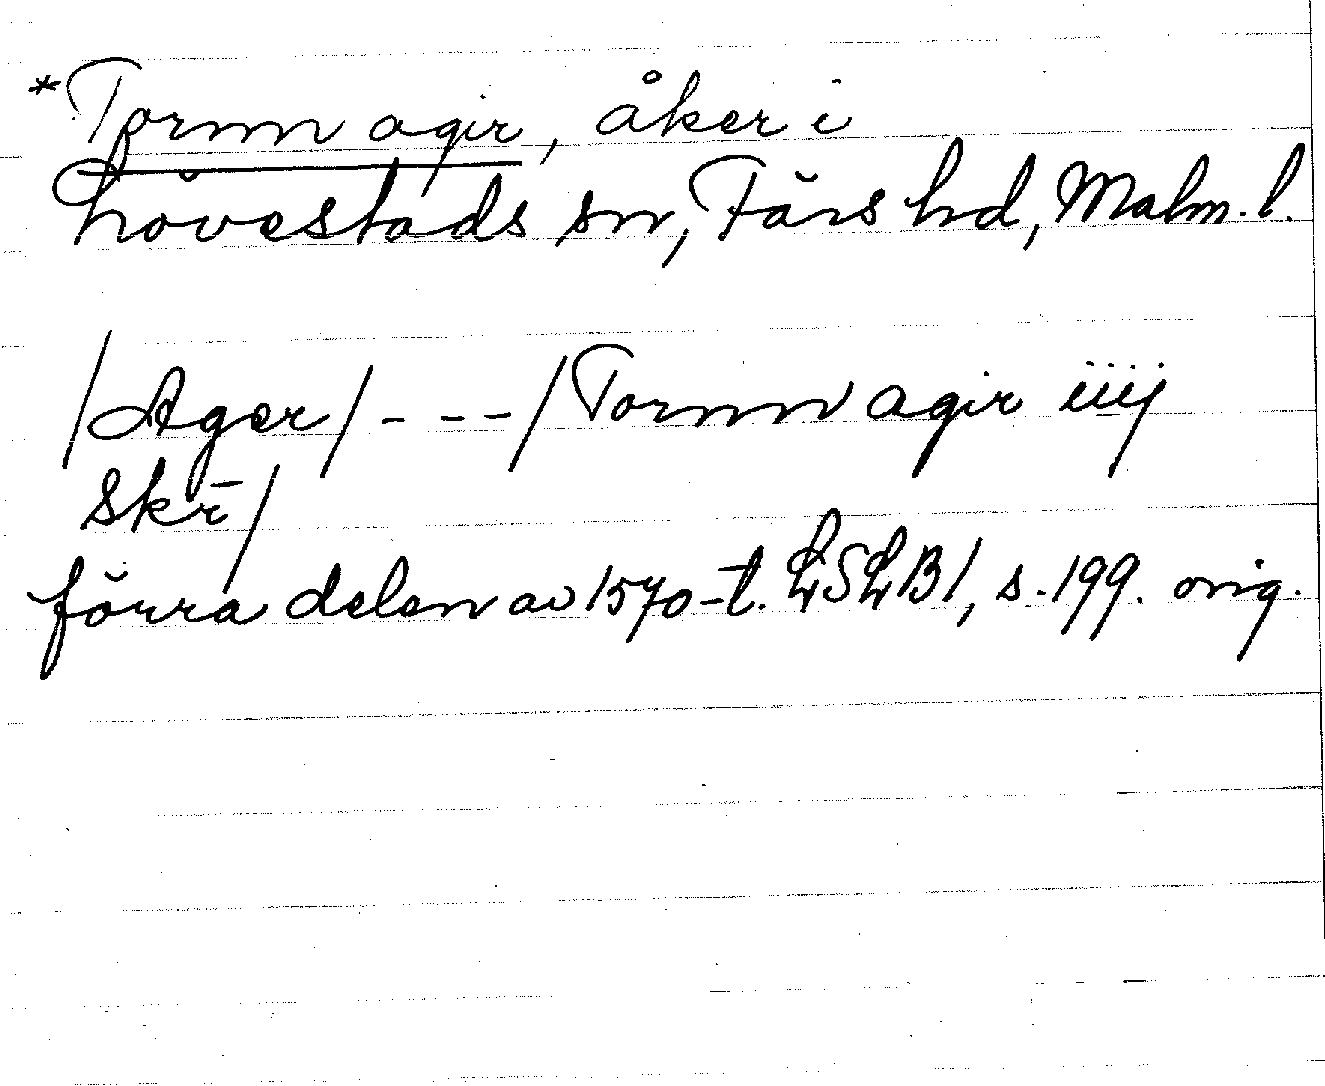 *Tornn agir, åker i
Lövestads sn, Färs hd, Malm. l.
/Ager/ - - - /Tornn agir iiij
skr̄/
förra delen av 1570-t. LSLB1, s. 199. orig.